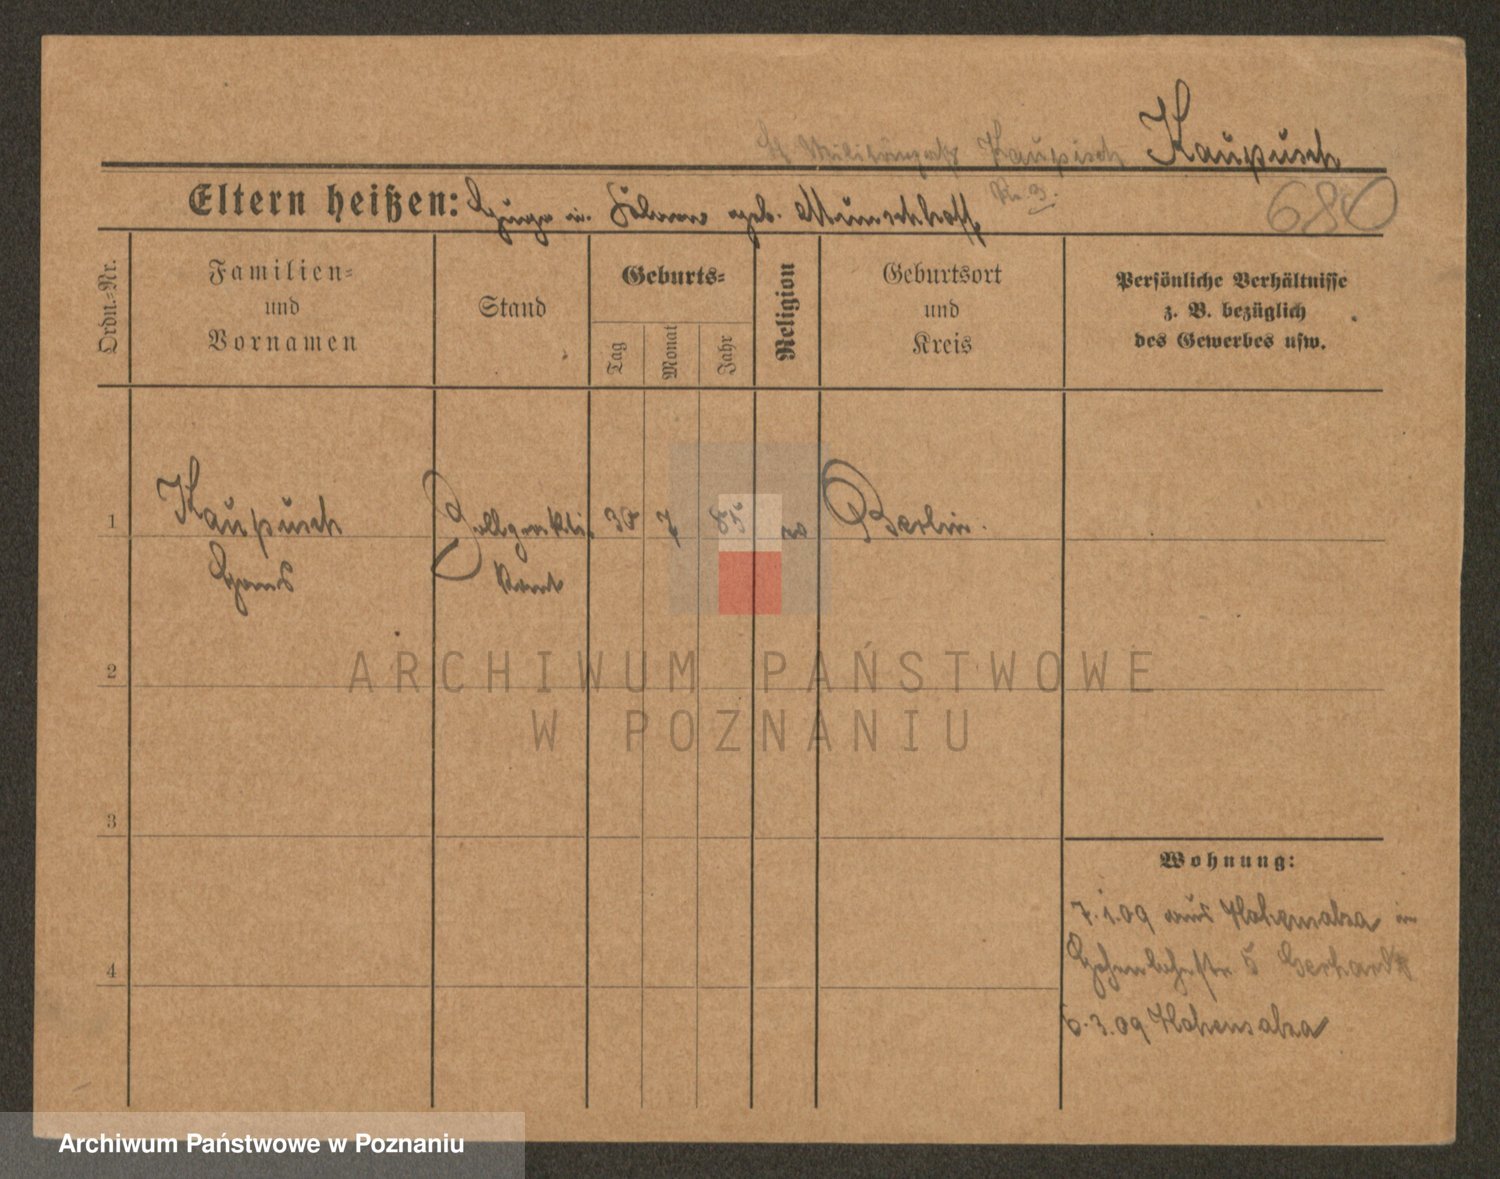 Kaupusch
Kaupisch
680
Eltern heißen: Hugo u. geb.
Ordn.-Nr.
Familien-
und
Vornamen
Stand
Geburts-
Tag
Monat
Jahr
Religion
Geburtsort
und
Kreis
Persönliche Verhältnisse
z. B. bezüglich
des Gewerbes usw.
1
Kaupusch
Hans
Zollprakti
kant
30
7
85
ev
Berlin.
2
3
4
Wohnung:
7.1.09 aus Hohensalza in
5 Gerhardt
6.3.09 Hohensalza
ARCHIWUM PAŃSTWOWE
W POZNANIU
Archiwum Państwowe w Poznaniu